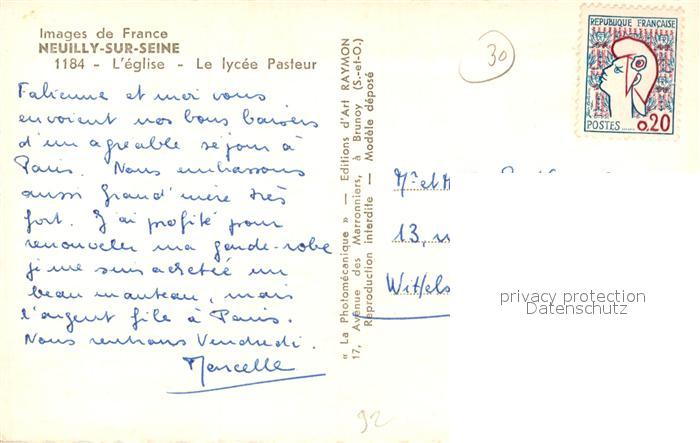 Images de France
NEUILLY-SUR-SEINE
1184 - L'église - Le lycée Pasteur
Fabienne et moi vous
envoient nos bons baisers
d'un agréable séjour à
Paris. Nous embrassons
aussi Grand'mère très
fort. J'ai profité pour
renouveler ma garde-robe
je me suis achetée un
beau manteau, mais
l'argent file à Paris.
Nous rentrons Vendredi.
Marcelle
« La Photomécanique » — Editions d'Art RAYMON
17, Avenue des Marronniers, à Brunoy (S.-et-O.)
Reproduction interdite — Modèle déposé
30
REPUBLIQUE FRANÇAISE
POSTES 0,20
Mr et M
13,
Wittels
privacy protection
Datenschutz
92